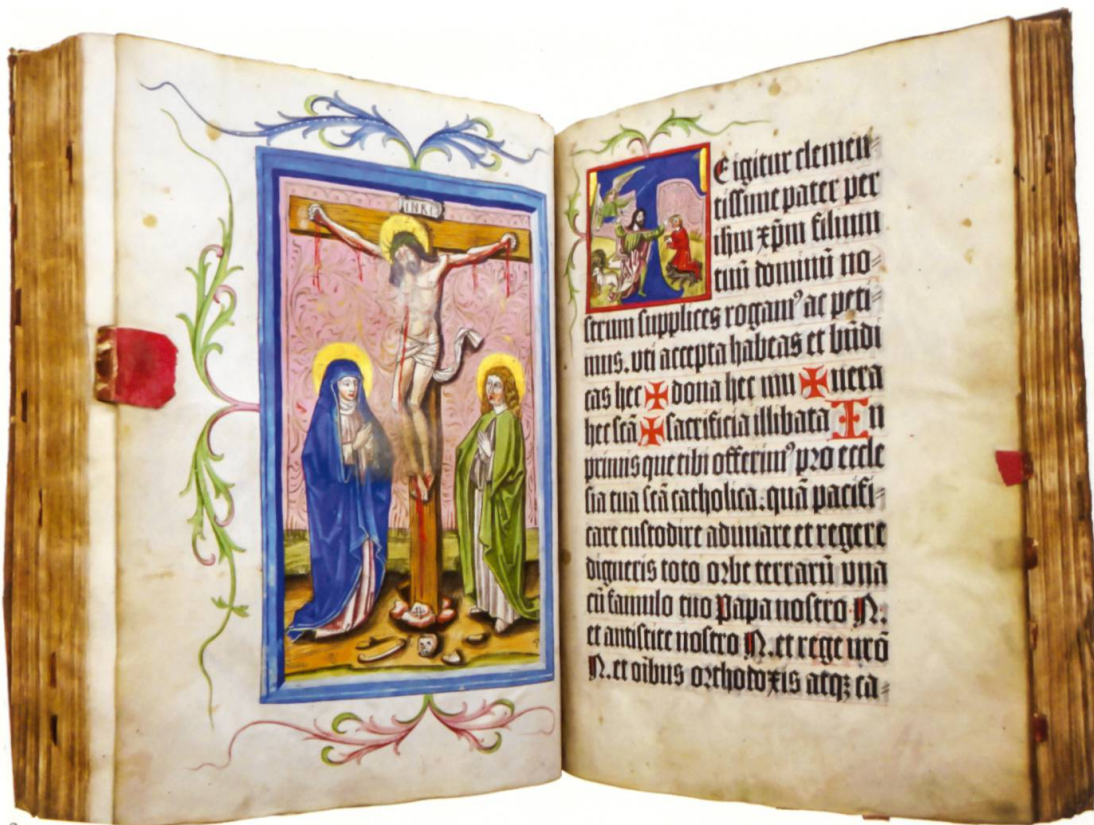 INRI
Te igitur clemen⸗
tissime pater per
ihm xp̄m filium
tuū dominū no⸗
strum supplices rogamꝰ ac peti⸗
mus. vti accepta habeas et bn̄di
cas hec ✠ dona hec mu ✠ nera
hec scā ✠ sacrificia illibata In
primis que tibi offerimꝰ pro eccle
sia tua scā catholica. quā pacifi⸗
care custodire adunare et regere
digneris toto orbe terrarū vna
cū famulo tuo Papa nostro N.
et antistite nostro N. et rege nr̄o
N. et oībus orthodoxis atqꝫ ca⸗